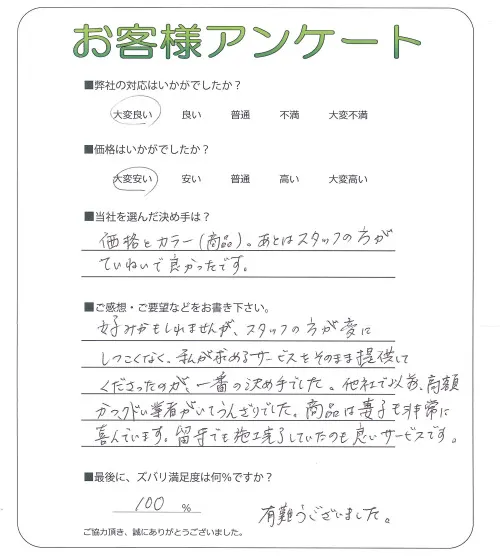 お客様アンケート
■弊社の対応はいかがでしたか？
大変良い 良い 普通 不満 大変不満
■価格はいかがでしたか？
大変安い 安い 普通 高い 大変高い
■当社を選んだ決め手は？
価格とカラー(商品)。あとはスタッフの方が
ていねいで良かったです。
■ご感想・ご要望などをお書き下さい。
好みかもしれませんが、スタッフの方が変に
しつこくなく、私が求めるサービスをそのまま提供して
くださったのが、一番の決め手でした。他社で以前、高額
かつクドい業者がいてうんざりでした。商品は妻子も非常に
喜んでいます。留守でも施工完了していたのも良いサービスです。
■最後に、ズバリ満足度は何%ですか？
100 %
有難うございました。
ご協力頂き、誠にありがとうございました。